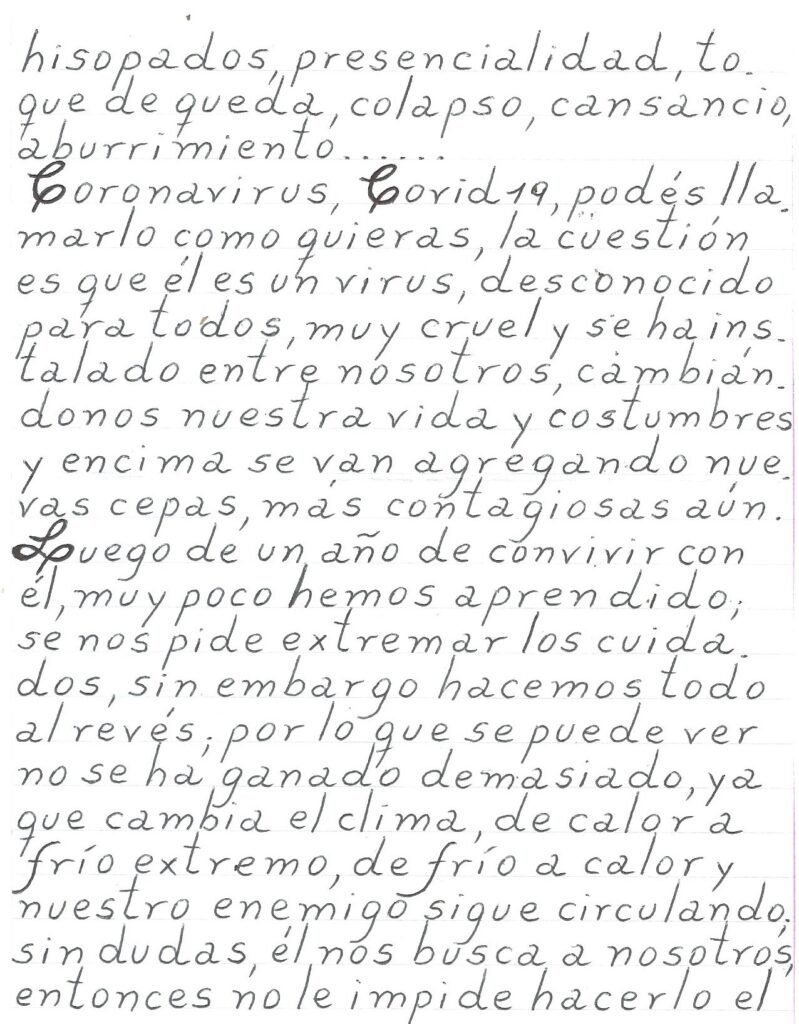 hisopados, presencialidad, to-
que de queda, colapso, cansancio,
aburrimiento......
Coronavirus, Covid 19, podés lla-
marlo como quieras, la cuestión
es que él es un virus, desconocido
para todos, muy cruel y se ha ins-
talado entre nosotros, cambián-
donos nuestra vida y costumbres
y encima se van agregando nue-
vas cepas, más contagiosas aún.
Luego de un año de convivir con
él, muy poco hemos aprendido;
se nos pide extremar los cuida-
dos, sin embargo hacemos todo
al revés; por lo que se puede ver
no se ha ganado demasiado, ya
que cambia el clima, de calor a
frío extremo, de frío a calor y
nuestro enemigo sigue circulando;
sin dudas, él nos busca a nosotros,
entonces no le impide hacerlo el